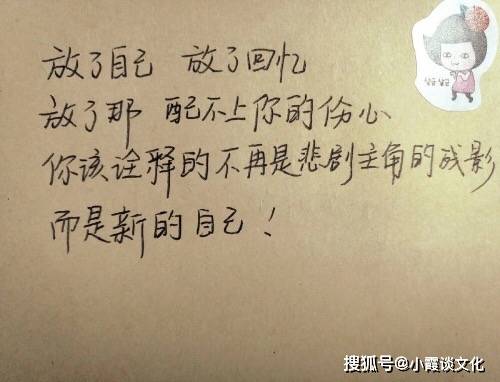 放了自己 放了回忆
放了那 配不上你的伤心
你该诠释的不再是悲剧主角的残影
而是新的自己！
살금살금
搜狐号@小霞谈文化